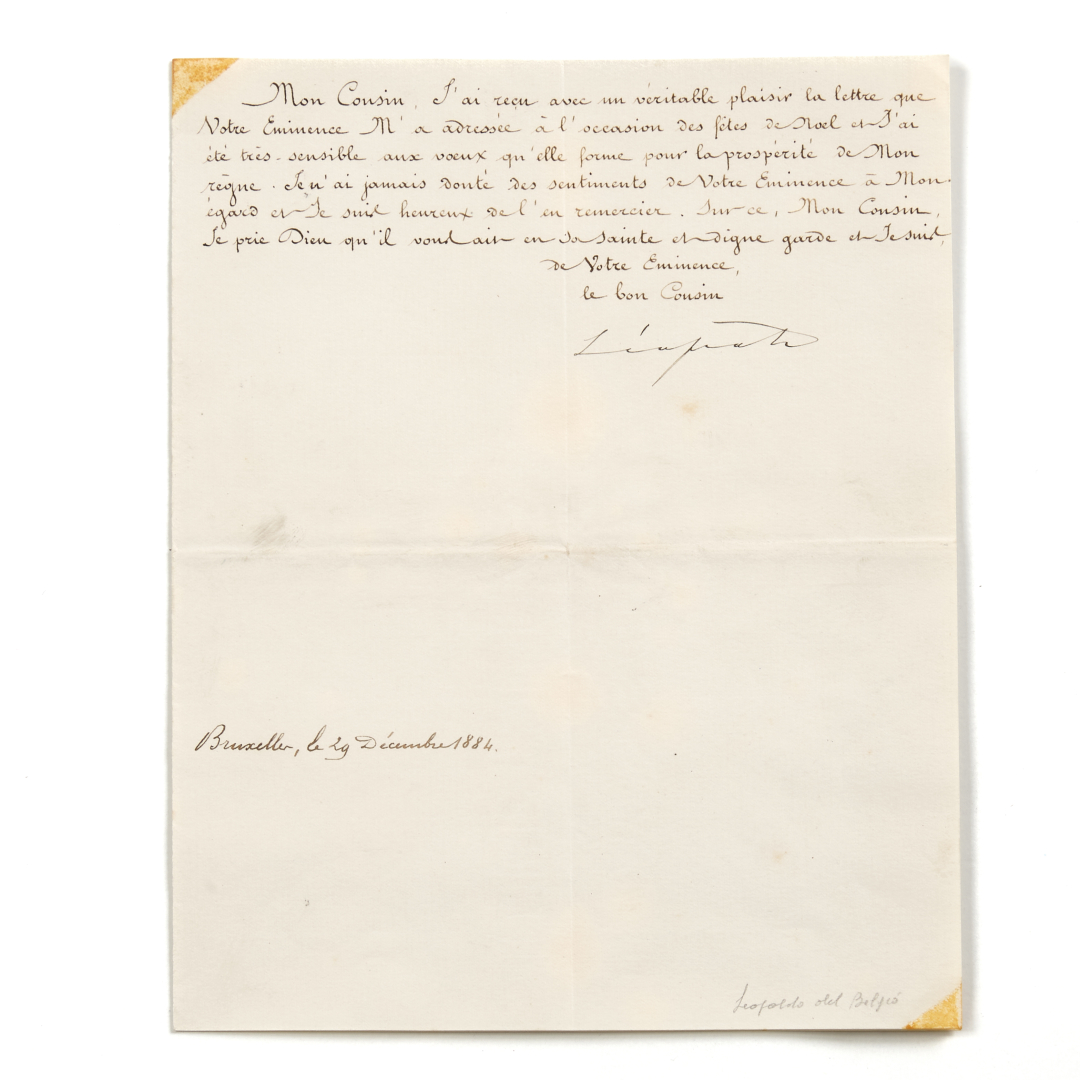 Mon Cousin, J'ai reçu avec un véritable plaisir la lettre que
Votre Eminence M'a adressée à l'occasion des fêtes de Noel et J'ai
été très-sensible aux voeux qu'elle forme pour la prospérité de Mon
règne. Je n'ai jamais douté des sentiments de Votre Eminence à Mon
égard et Je suis heureux de l'en remercier. Sur ce, Mon Cousin,
Je prie Dieu qu'il vous ait en Sa Sainte et digne garde et Je suis,
de Votre Eminence,
le bon Cousin
Léopold
Bruxelles, le 29 Décembre 1884.
Leopoldo del Belgio